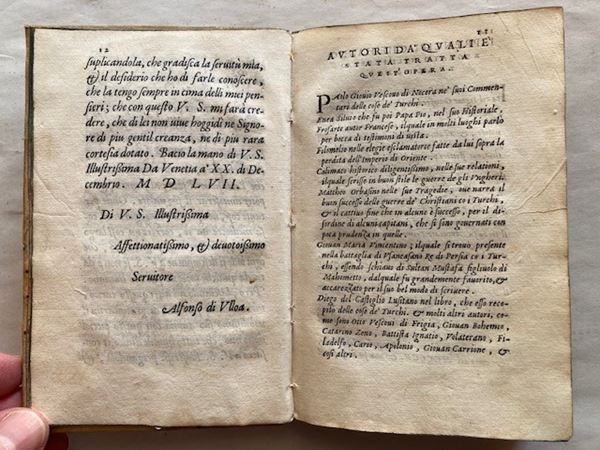 12
suplicandola, che gradisca la seruitù mia,
& il desiderio che ho di farle conoscere,
che la tengo sempre in cima delli miei pen-
sieri; che con questo V. S. mi farà cre-
dere, che di lei non uiue hoggidì ne Signore
di più gentil creanza, ne di piu rara
cortesia dotato. Bacio la mano di V. S.
Illustrissima Da Venetia a' XX. di De-
cembrio. M D LVII.
Di V. S. Illustrissima
Affettionatissimo, & deuotissimo
Seruitore
Alfonso di Vlloa.
AVTORI DA' QVALI E'
STATA TRATTA
QUEST' OPERA.
PAolo Giouio Vescouo di Nocera ne' suoi Commen-
tari delle cose de' Turchi.
Enea Siluio che fu poi Papa Pio, nel suo Historiale.
Frosarte autor Francese, ilquale in molti luoghi parlo
per bocca di testimoni di uista.
Filomelfo nelle elegie esclamatorie fatte da lui sopra la
perdita dell'Imperio di Oriente.
Calimaco historico diligentissimo, nelle sue relationi,
ilquale scrisse in buon stile le guerre de gli Vngheri.
Mattheo Orbasino nelle sue Tragedie, oue narra il
buon successo delle guerre de' Christiani co i Turchi,
& il cattiuo fine che in alcune è successo, per il dis-
ordine di alcuni capitani, che si sono gouernati con
poca prudenza in quelle.
Giouan Maria Vincentino; ilquale si trouo presente
nella battaglia di Vsaneasano Re di Persia co i Tur-
chi, essendo schiauo di Sultan Mustafa figliuolo di
Mahometto, dalquale fu grandemente fauorito, &
accarezzato per il suo bel modo di scriuere.
Diego del Castiglio Lusitano nel libro, che esso reco-
pilò delle cose de' Turchi. & molti altri autori, co-
me sono Otto Vescoui di Frigia, Giouan Bohemio,
Catarino Zeno, Battista Ignatio, Volaterano, Fi-
ladelfo, Carso, Apolonio, Giouan Carrione, &
cosi altri.